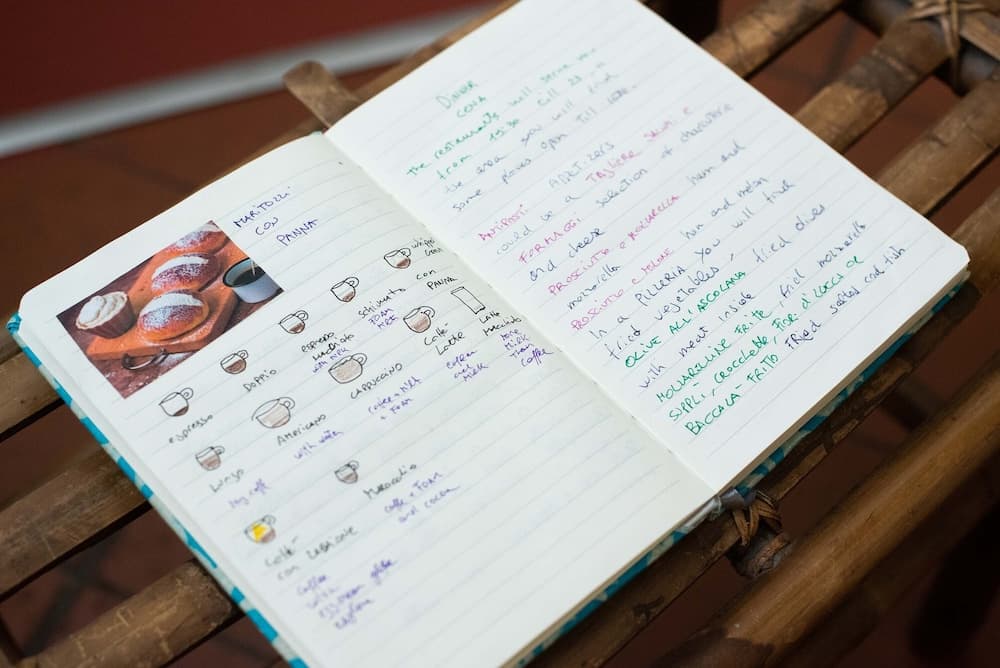 MARITOZZI
CON
PANNA
espresso
Doppio
espresso
macchiato
with milk
schiumato
FOAM
FREE
con
PANNA
Lungo
Americano
with water
CAPPUCCINO
coffee + milk
+ FOAM
Caffè-
Latte
coffee
and
Milk
Latte
macchiato
more
milk
Than
coffee
Marocchino
coffee + FOAM
and cocoa
Caffè-
con ZABAIONE
coffee
with
DINNER
CENA
the restaurants will serve
from 19:30 till 23
some places open till late.
ANTIPASTI APETIZERS
could be a selection of
TAGLIERE SALUMI E
FORMAGGI
and cheese
PROSCIUTTO e MOZZARELLA ham and
mozzarella
PROSCIUTTO e MELONE ham and melon
In a PIZZERIA you will find
fried vegetables, fried olives
OLIVE ALL'ASCOLANA
with meat inside
fried mozzarella
SUPPLÌ - CROCCHETTE, FIORI D'ZUCCA OR
BACCALÀ - FRITTO FRIED salted cod fish